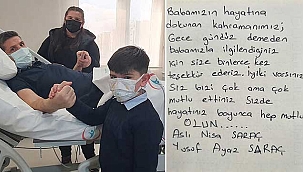 Babamızın hayatına
dokunan kahramanımız;
Gece gündüz demeden
babamızla ilgilendiğiniz
için size binlerce kez
teşekkür ederiz. İyiki varsınız
Siz bizi çok ama çok
mutlu ettiniz Sizde
hayatınız boyunca hep mutlu
OLUN.....
Aslı Nisa SARAÇ
Yusuf Ayaz SARAÇ